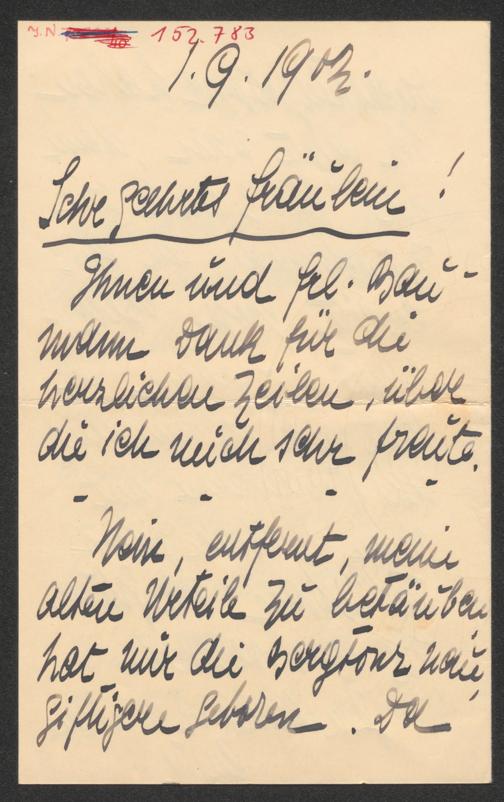 J.N. 152.783
1.9.1902.
Sehr geehrtes Fräulein!
Ihnen und Frl. Bau-
mann Dank für die
herzlichen Zeilen, über
die ich mich sehr freute.
- - - -
Nein, entfernt, meine
alten Urteile zu betäuben
hat mir die Bergtour neue,
giftigere geboren. Da